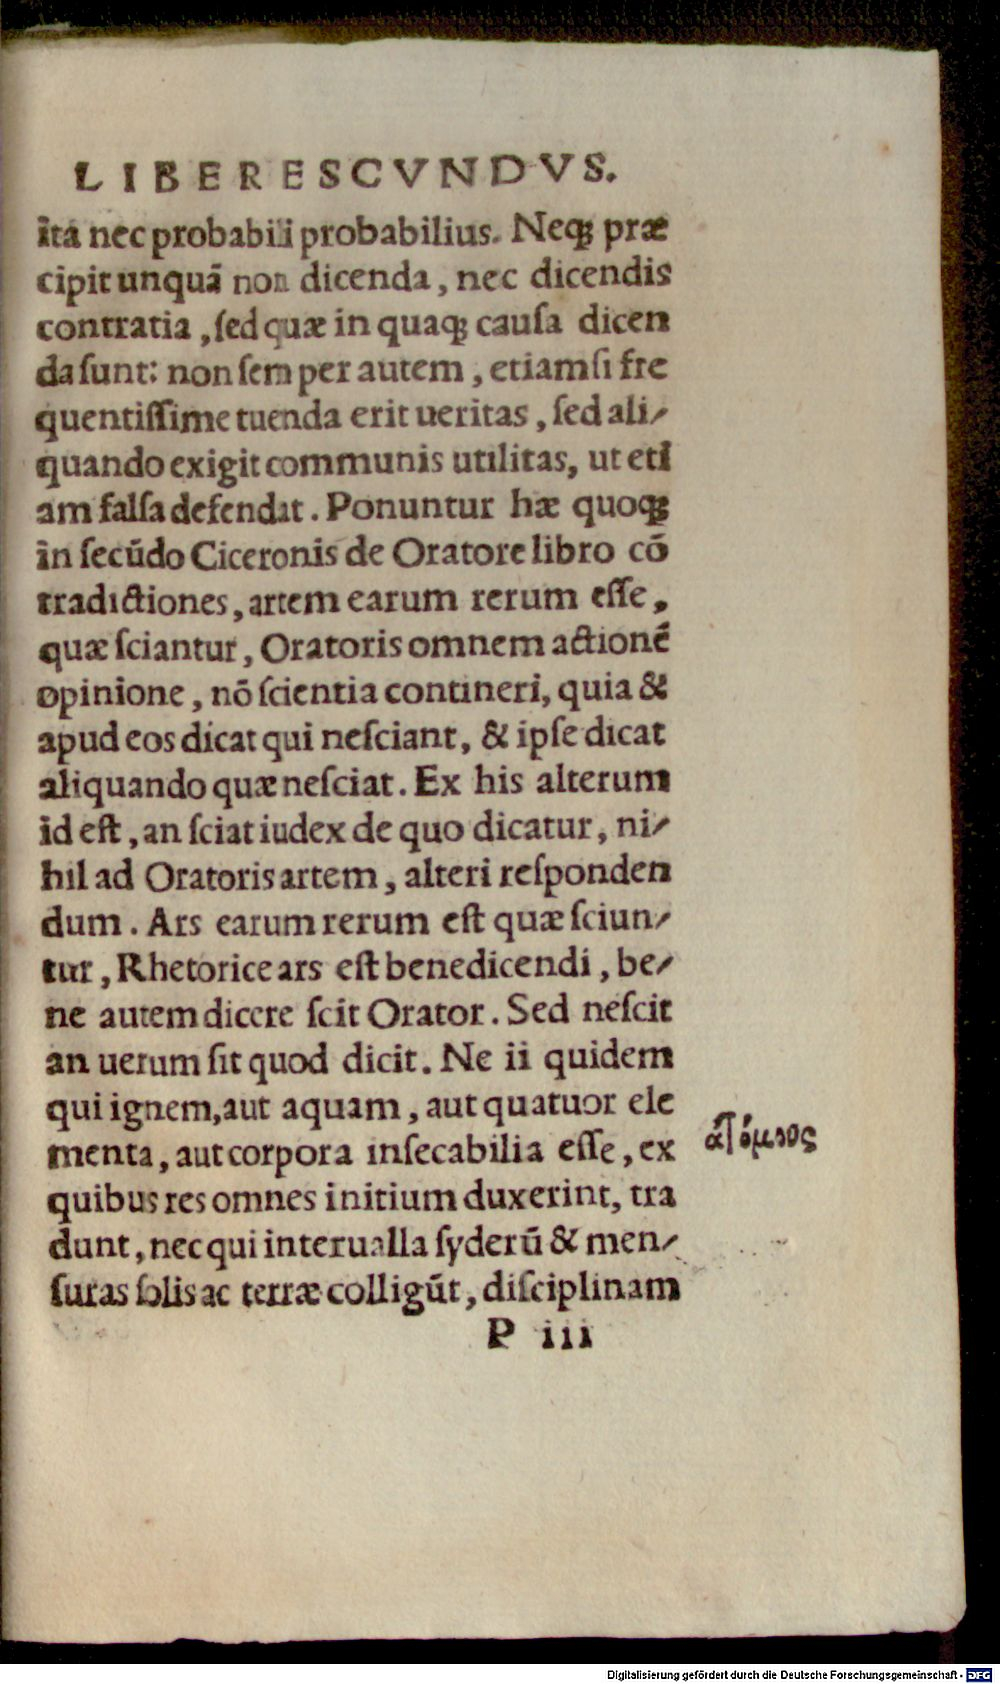 LIBER ESCVNDVS.
ita nec probabili probabilius. Neqꝫ præ
cipit unquã non dicenda, nec dicendis
contratia, ſed quæ in quaqꝫ cauſa dicen
da ſunt: non ſemper autem, etiamſi fre
quentiſſime tuenda erit ueritas, ſed ali-
quando exigit communis utilitas, ut eti
am falſa defendat. Ponuntur hæ quoqꝫ
in ſecũdo Ciceronis de Oratore libro cõ
tradictiones, artem earum rerum eſſe,
quæ ſciantur, Oratoris omnem actionẽ
opinione, nõ ſcientia contineri, quia &
apud eos dicat qui neſciant, & ipſe dicat
aliquando quæ neſciat. Ex his alterum
id eſt, an ſciat iudex de quo dicatur, ni-
hil ad Oratoris artem, alteri reſponden
dum. Ars earum rerum eſt quæ ſciun-
tur, Rhetorice ars eſt benedicendi, be-
ne autem dicere ſcit Orator. Sed neſcit
an uerum ſit quod dicit. Ne ii quidem
qui ignem, aut aquam, aut quatuor ele
menta, aut corpora inſecabilia eſſe, ex
quibus res omnes initium duxerint, tra
dunt, nec qui interualla ſyderũ & men-
ſuras ſolis ac terræ colligũt, diſciplinam
P iii
Digitalisierung gefördert durch die Deutsche Forschungsgemeinschaft - DFG